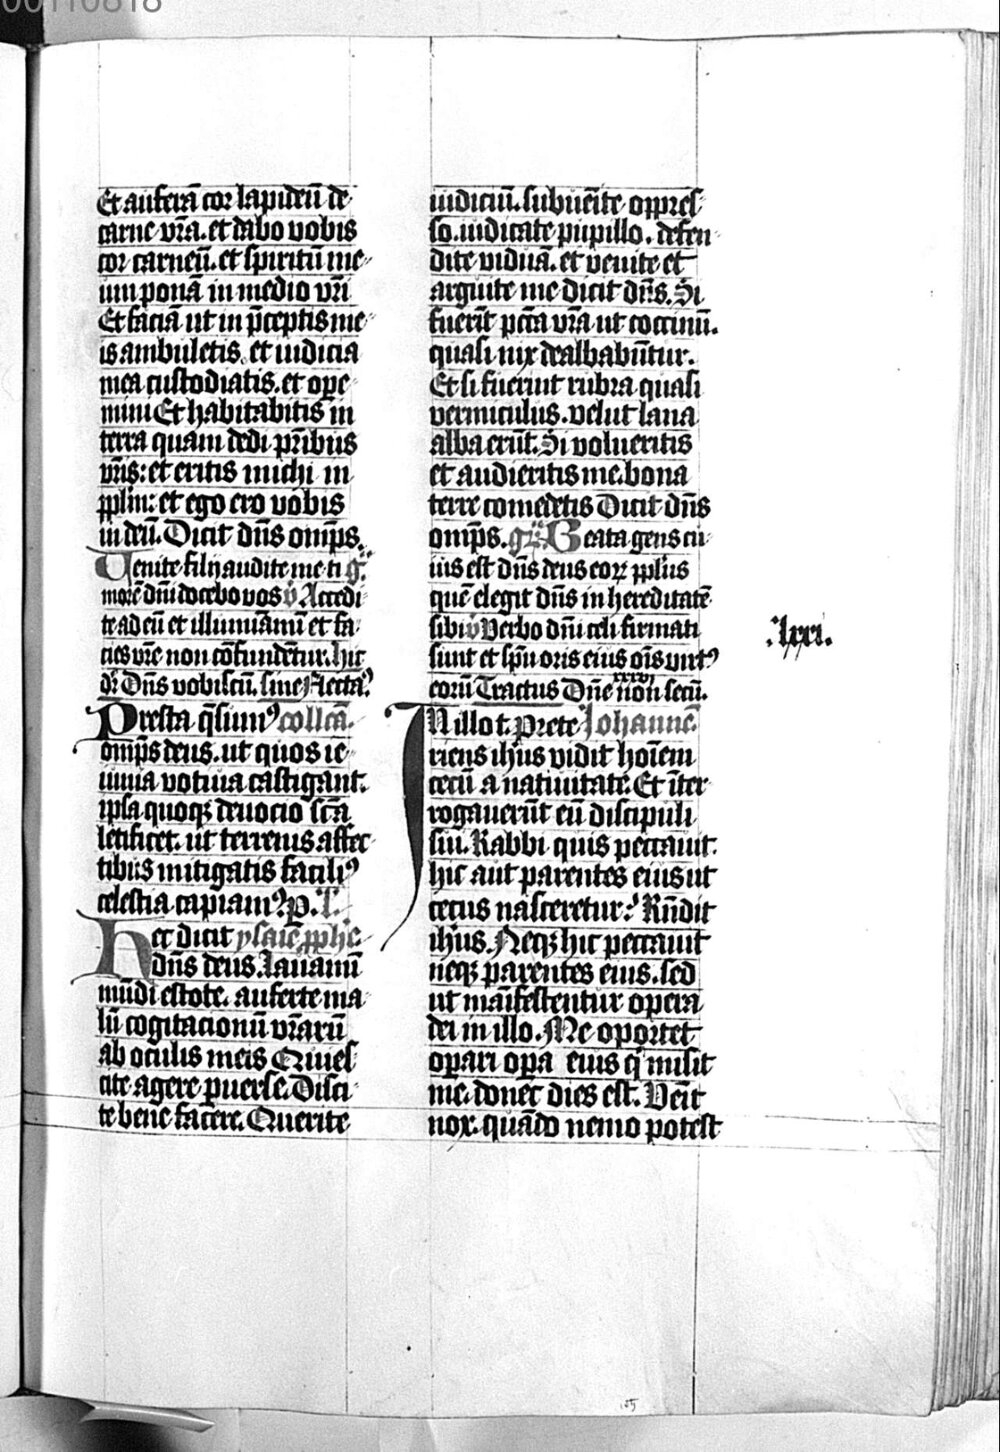 00110818
Et auferā cor lapideū de
carne vr̄a. et dabo vobis
cor carneū. et spiritū me
um ponā in medio vr̄i
Et faciā ut in p̄ceptis me
is ambuletis. et iudicia
mea custodiatis. et ope
mini Et habitabitis in
terra quam dedi pr̄ibus
vr̄is: et eritis michi in
pplm: et ego ero vobis
in deū. Dicit dn̄s omp̄s.
Venite filij audite me ti gͬ
morē dn̄i docebo vos ỽ Accedi
te ad eū et illuminam̄i et fa
cies vr̄e non cōfundentur. hic
dr̄ Dn̄s vobiscū. sine flectaꝰ
Presta q̄sumꝰ collcā
omp̄s deus. ut quos ie
iunia votiua castigant.
ipsa quoqꝫ deuocio sc̄a
letificet. ut terrenis affec
tibus mitigatis faciliꝰ
celestia capiamꝰ. p. L.
Hec dicit ysaie pphe
dn̄s deus. Lauamī
mūdi estote. auferte ma
lū cogitacionū vr̄arū
ab oculis meis Quies
cite agere puerse. Disci
te bene facere. Querite
iudiciū. subuēite oppres
so. iudicate pupillo. defen
dite viduā. et venite et
arguite me dicit dn̄s. Si
fuerīt pctā vr̄a ut coccinū.
quasi nix dealbabūtur.
Et si fuerint rubra quasi
vermiculus. velut lana
alba erūt. Si volueritis
et audieritis me. bona
terre comedetis Dicit dn̄s
omp̄s. gͬ Beata gens cu
ius est dn̄s deus eoꝝ pplus
quē elegit dn̄s in hereditatē
sibi ỽ Verbo dn̄i celi firmati
sunt et spū oris eius oīs virtꝰ
eorū Tractus Dn̄e non secū.
.lxxi.
xxxv
IN illo t. Prete Johannē
riens ihūs vidit hoīem
cecū a natiuitate. Et īter
rogauerūt eū discipuli
sui. Rabbi quis peccauit.
hic aut parentes eius ut
cecus nasceretur? Rn̄dit
ihūs. Neqꝫ hic peccauit
neqꝫ parentes eius. sed
ut maīfestentur opera
dei in illo. Me oportet
opari opa eius qͥ misit
me. donec dies est. Veīt
nox. quādo nemo potest